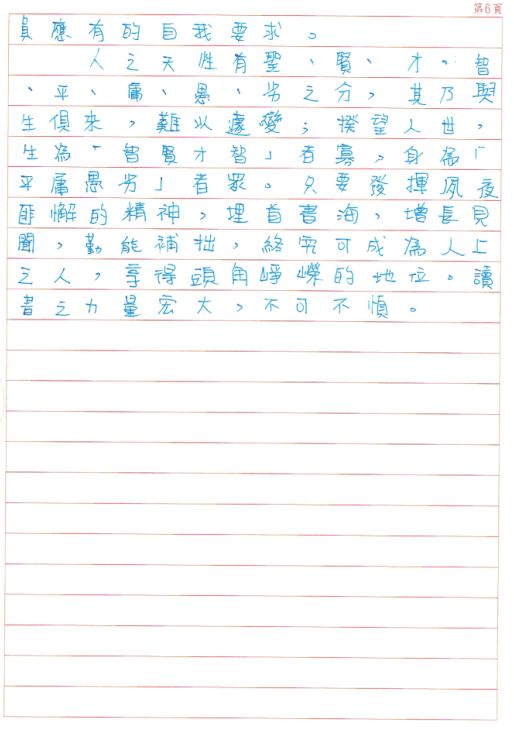 第6頁
員應有的自我要求。
人之天性有聖、賢、才、智
、平、庸、愚、劣之分，其乃與
生俱來，難以遽變；揆望人世，
生為「智賢才智」者寡，身為「
平庸愚劣」者眾。只要發揮夙夜
匪懈的精神，埋首書海，增長見
聞，勤能補拙，終究可成為人上
之人，享得頭角崢嶸的地位。讀
書之力量宏大，不可不慎。